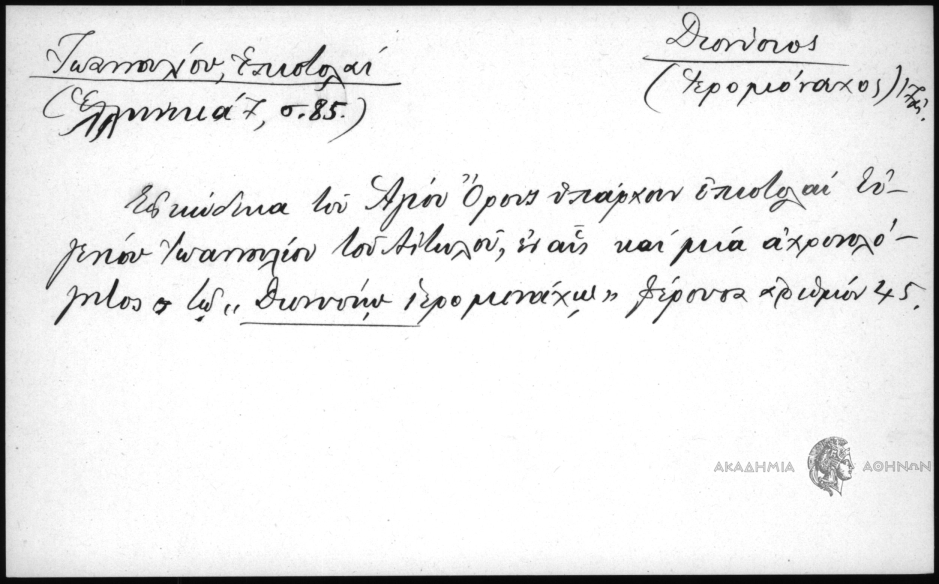 Ἰωαννουλίου, Ἐπιστολαί
(Ἑλληνικά 7, σ. 85.)
Διονύσιος
(Ἱερομόναχος)
Εἰς κώδικα τοῦ Ἁγίου Ὄρους ὑπάρχουν ἐπιστολαί Εὐ-
γενίου Ἰωαννουλίου τοῦ Αἰτωλοῦ, ἐν αἷς καί μιά ἀχρονολό-
γητος τῷ "Διονυσίῳ ἱερομονάχῳ" φέρουσα ἀριθμόν 245.
ΑΚΑΔΗΜΙΑ ΑΘΗΝΩΝ